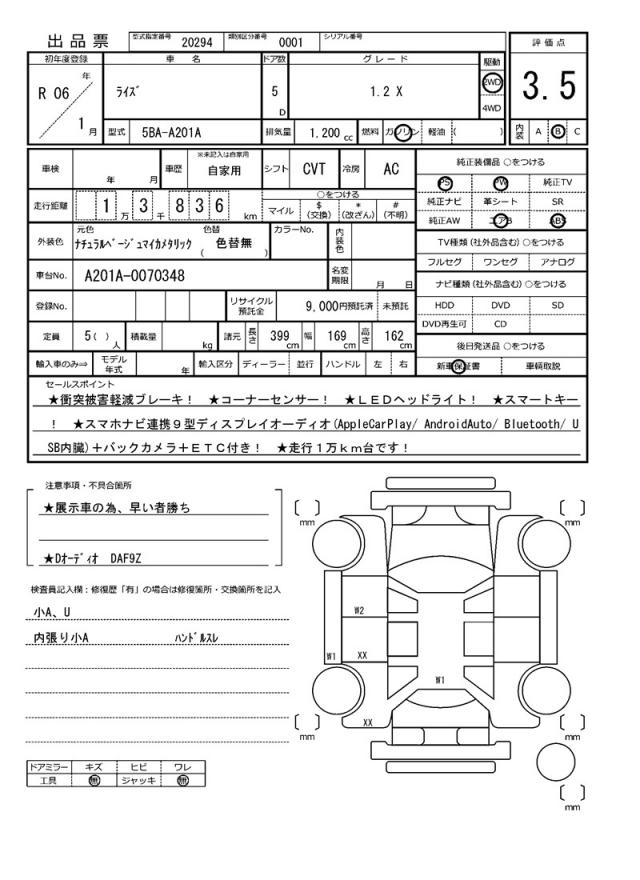 出品票 型式指定番号 20294 類別区分番号 0001 シリアル番号
評価点
3.5
内装 A B C
初年度登録 車名 ドア数 グレード 駆動
R 06 年 1 月 ライズ 5 D 1.2 X 2WD 4WD
型式 5BA-A201A 排気量 1.200 cc 燃料 ガソリン 軽油 ( )
車検 年 月 車歴 ※未記入は自家用 自家用 シフト CVT 冷房 AC
走行距離 1 万 3 千 8 3 6 km ○をつける マイル $ (交換) * (改ざん) # (不明)
外装色 元色 ナチュラルベージュマイカメタリック 色替 ( 色替無 ) カラーNo. 内装色
車台No. A201A-0070348 名変期限 月 日
登録No. リサイクル預託金 9,000円預託済 未預託
定員 5 ( ) 人 積載量 kg 諸元 長さ 399 cm 幅 169 cm 高さ 162 cm
輸入車のみ⇒ モデル年式 年 輸入区分 ディーラー 並行 ハンドル 左 右
純正装備品 ○をつける
PS PW 純正TV
純正ナビ 革シート SR
純正AW エアB ABS
TV種類 (社外品含む) ○をつける
フルセグ ワンセグ アナログ
ナビ種類 (社外品含む) ○をつける
HDD DVD SD
DVD再生可 CD
後日発送品 ○をつける
新車保証書 車輌取説
セールスポイント
★衝突被害軽減ブレーキ！ ★コーナーセンサー！ ★ＬＥＤヘッドライト！ ★スマートキー
！ ★スマホナビ連携９型ディスプレイオーディオ(AppleCarPlay/ AndroidAuto/ Bluetooth/ U
SB内臓)＋バックカメラ＋ＥＴＣ付き！ ★走行１万ｋｍ台です！
注意事項・不具合箇所
★展示車の為、早い者勝ち
★Dオーディオ DAF9Z
検査員記入欄：修復歴「有」の場合は修復箇所・交換箇所を記入
小A、U
内張り小A ハンドルスレ
ドアミラー キズ ヒビ ワレ
工具 無 ジャッキ 無
[ ] mm [ ] mm
W2
W1 XX
W1
XX
[ ] mm [ ] mm
[ ] mm